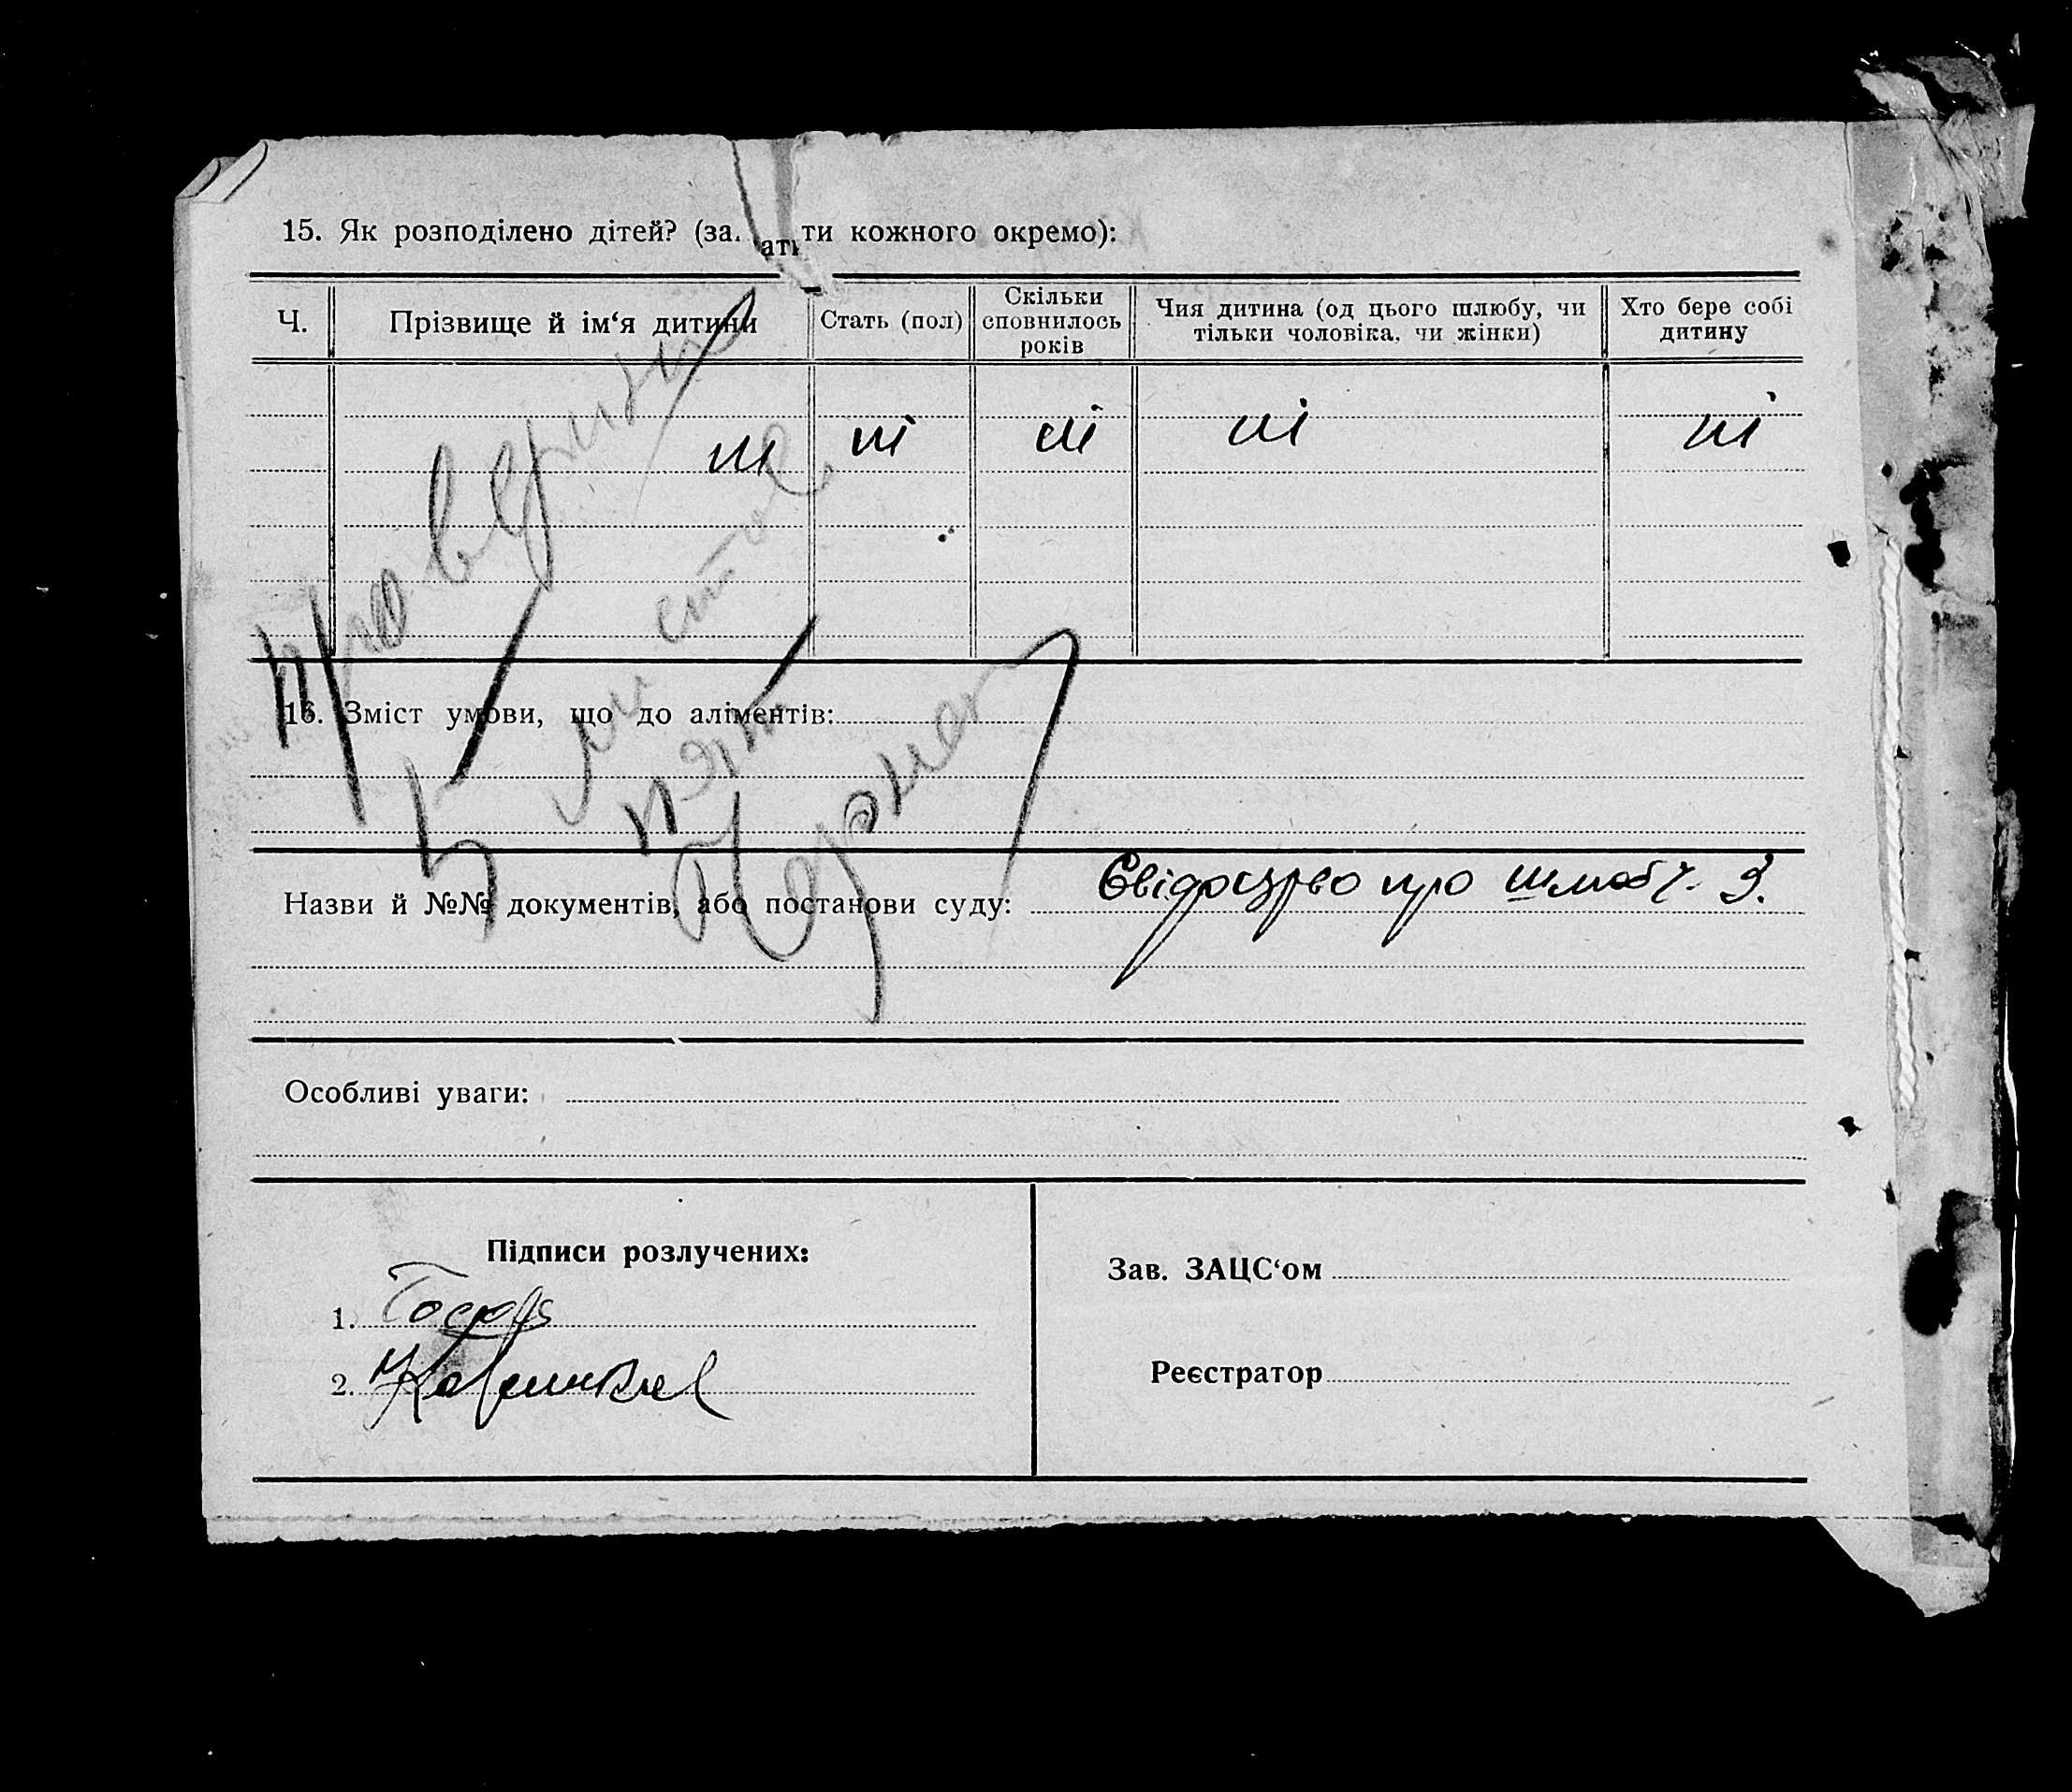 15. Як розподілено дітей? (за ати ти кожного окремо):
Ч.
Прізвище й ім‘я дитини
Стать (пол)
Скільки
сповнилось
років
Чия дитина (од цього шлюбу, чи
тільки чоловіка, чи жінки)
Хто бере собі
дитину
ні ні ні ні ні
16. Зміст умови, що до аліментів:
Назви й №№ документів, або постанови суду: Свідоцтво про шлюб ч. 3.
Особливі уваги:
Підписи розлучених:
1.
2.
Зав. ЗАЦС‘ом
Реєстратор